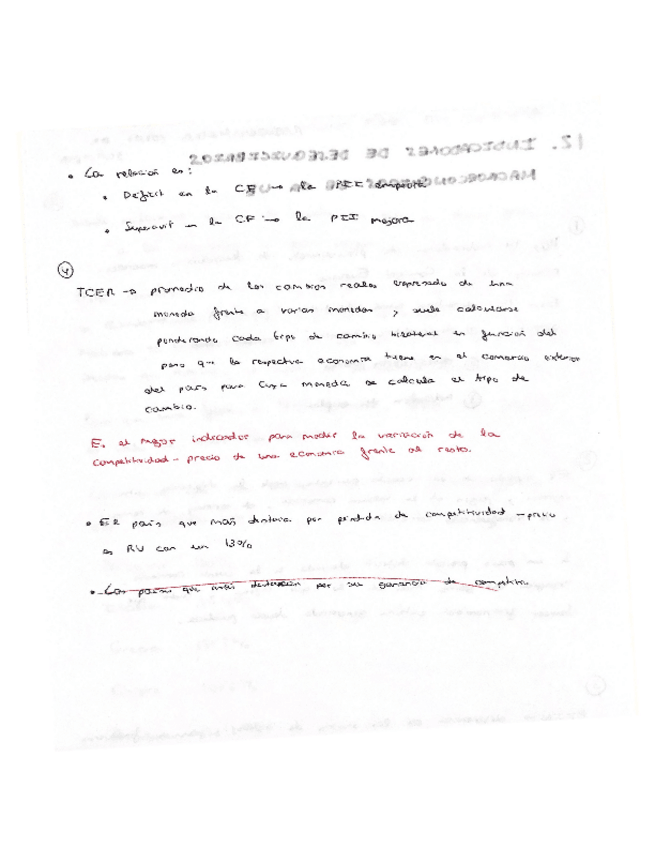 • La relación es:
• Déficit en la CF → la PII empeora
• Superávit en la CF → la PII mejora
④
TCER → promedio de los cambios reales expresado de una
moneda frente a varias monedas y suele calcularse
ponderando cada tipo de cambio bilateral en función del
peso que la respectiva economía tiene en el comercio exterior
del país para cuya moneda se calcula el tipo de
cambio.
Es el mejor indicador para medir la variación de la
competitividad-precio de una economía frente al resto.
• El país que más destaca por pérdida de competitividad-precio
es RU con un 13%
• Los países que más destacan por su ganancia de competitiv